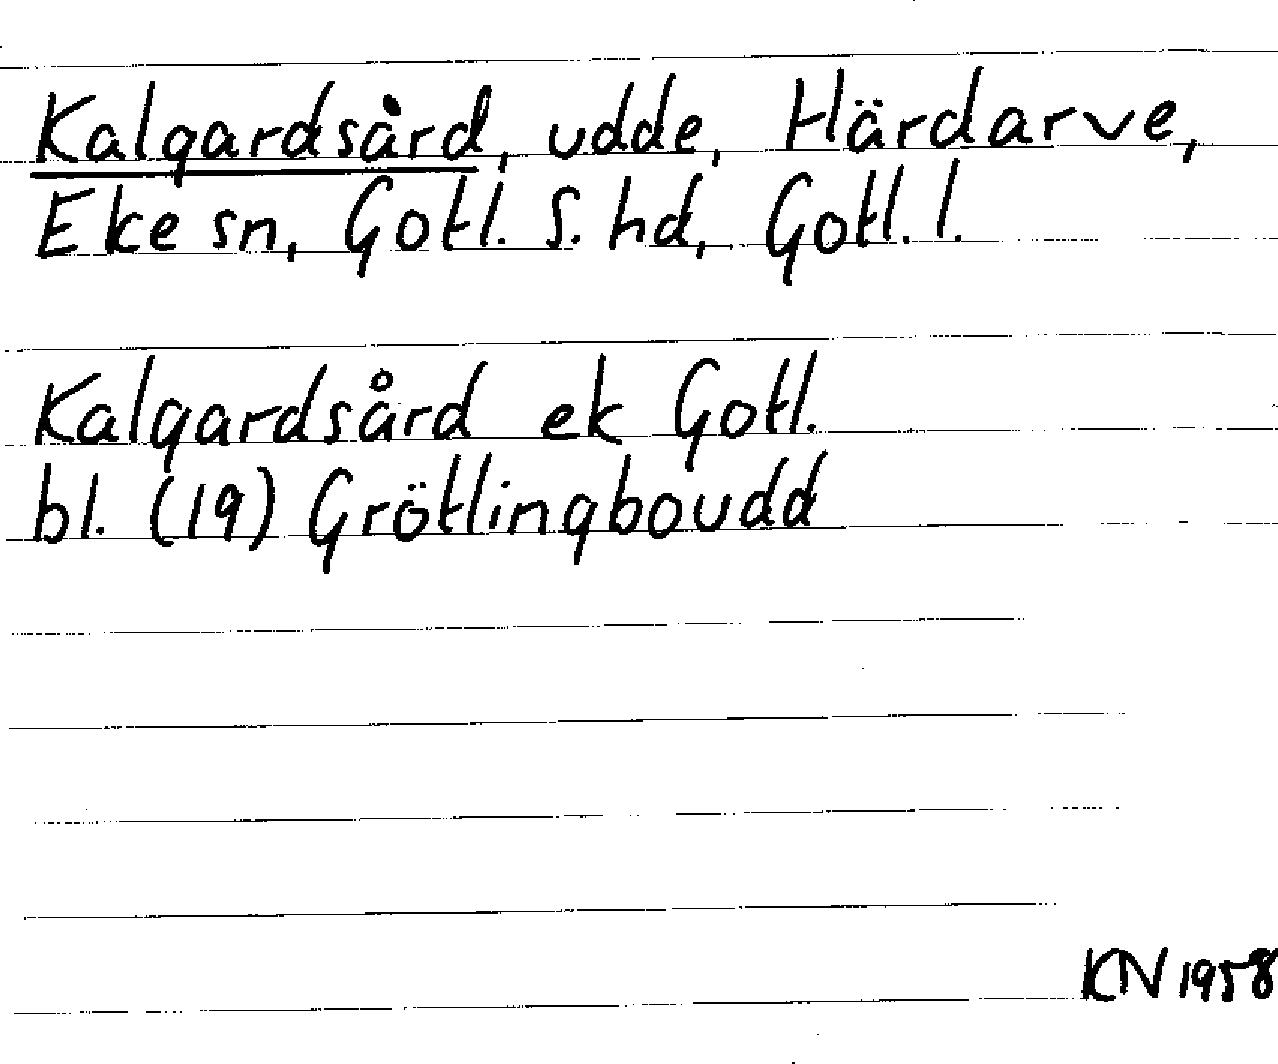 Kalgardsård, udde, Härdarve,
Eke sn, Gotl. S. hd, Gotl. l.
Kalgardsård ek Gotl.
bl. (19) Grötlingboudd
KN 1958